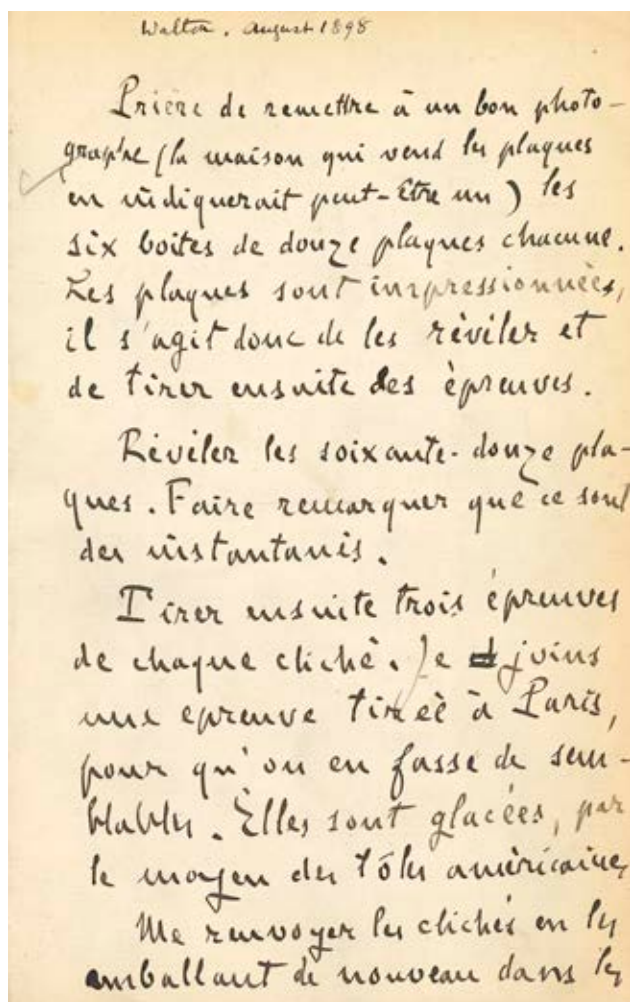 Walton. August 1898
Prière de remettre à un bon photo-
graphe (la maison qui vend les plaques
en indiquerait peut-être un) les
six boites de douze plaques chacune.
Les plaques sont impressionnées,
il s'agit donc de les révéler et
de tirer ensuite des épreuves.
Révéler les soixante-douze pla-
ques. Faire remarquer que ce sont
des instantanés.
Tirer ensuite trois épreuves
de chaque cliché. Je joins
une epreuve tirée à Paris,
pour qu'on en fasse de sem-
blables. Elles sont glacées, par
le moyen des tôles américaines
Me renvoyer les clichés en les
emballant de nouveau dans les